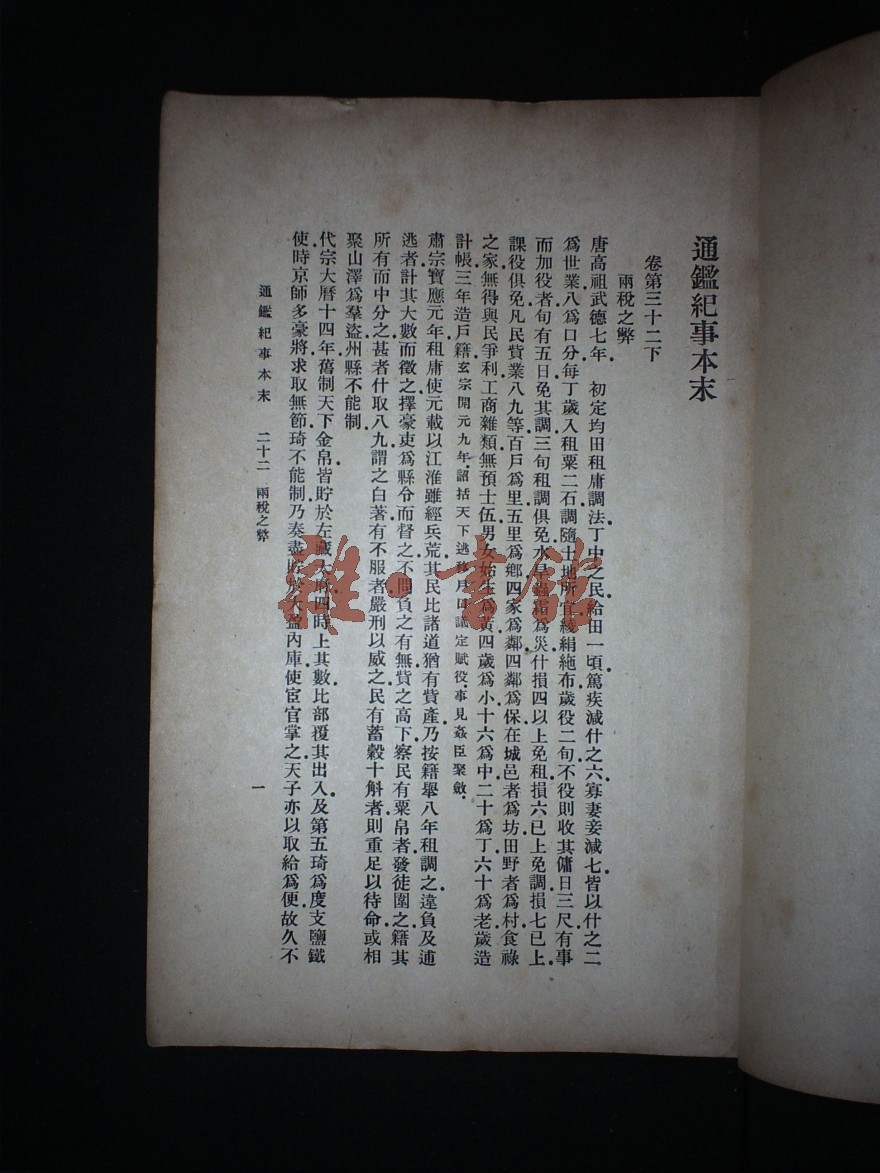 通鑑紀事本末
卷第三十二下
兩稅之弊
唐高祖武德七年初定均田租庸調法丁中之民給田一頃篤疾減什之六寡妻妾減七皆以什之二
爲世業八爲口分每丁歲入租粟二石調隨土地所宜綾絹絁布歲役二旬不役則收其傭日三尺有事
而加役者旬有五日免其調三旬租調俱免水旱蟲霜爲災什損四以上免租損六已上免調損七已上
課役俱免凡民貲業八九等百戶爲里五里爲鄉四家爲鄰四鄰爲保在城邑者爲坊田野者爲村食祿
之家無得與民爭利工商雜類無預士伍男女始生爲黃四歲爲小十六爲中二十爲丁六十爲老歲造
計帳三年造戶籍玄宗開元九年詔括天下逃移戶口議定賦役事見姦臣聚斂
肅宗寶應元年租庸使元載以江淮雖經兵荒其民比諸道猶有貲產乃按籍舉八年租調之違負及逋
逃者計其大數而徵之擇豪吏爲縣令而督之不問負之有無貲之高下察民有粟帛者發徒圍之籍其
所有而中分之甚者什取八九謂之白著有不服者嚴刑以威之民有蓄穀十斛者則重足以待命或相
聚山澤爲羣盜州縣不能制
代宗大曆十四年舊制天下金帛皆貯於左藏太府四時上其數比部覆其出入及第五琦爲度支鹽鐵
使時京師多豪將求取無節琦不能制乃奏盡貯於大盈內庫使宦官掌之天子亦以取給爲便故久不
通鑑紀事本末 二十二 兩稅之弊 一
雜·書館